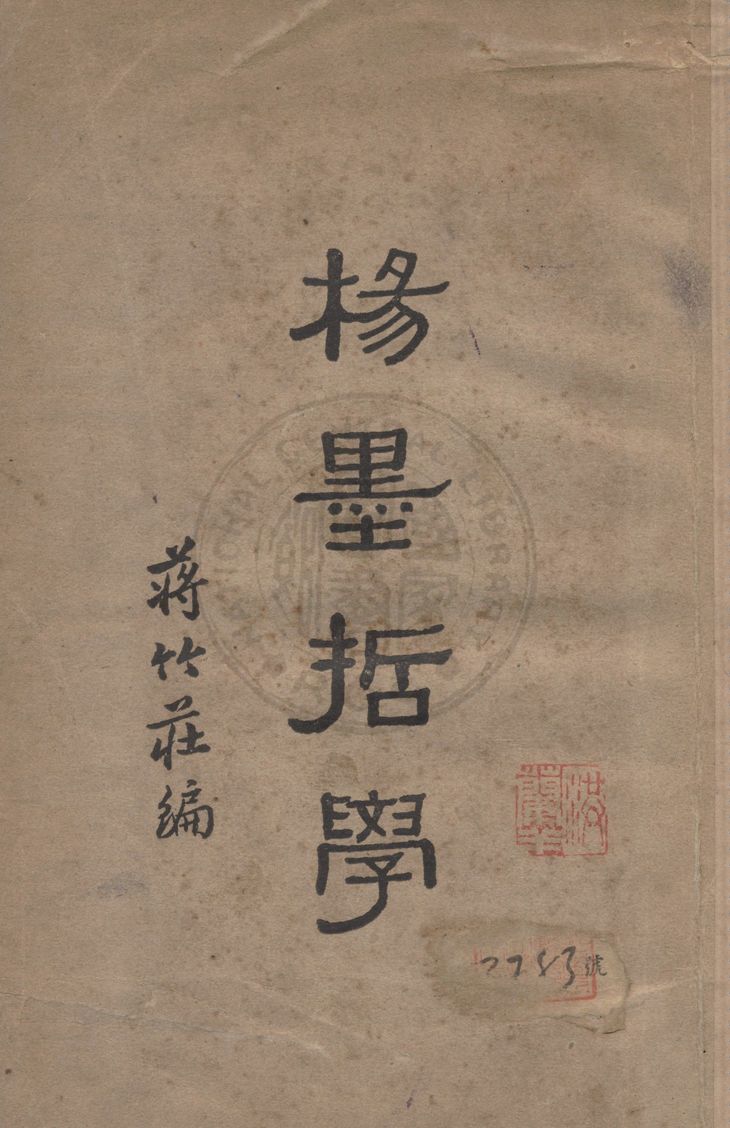 楊墨哲學
蔣竹莊編
NATIONAL CENTRAL LIBRARY
號